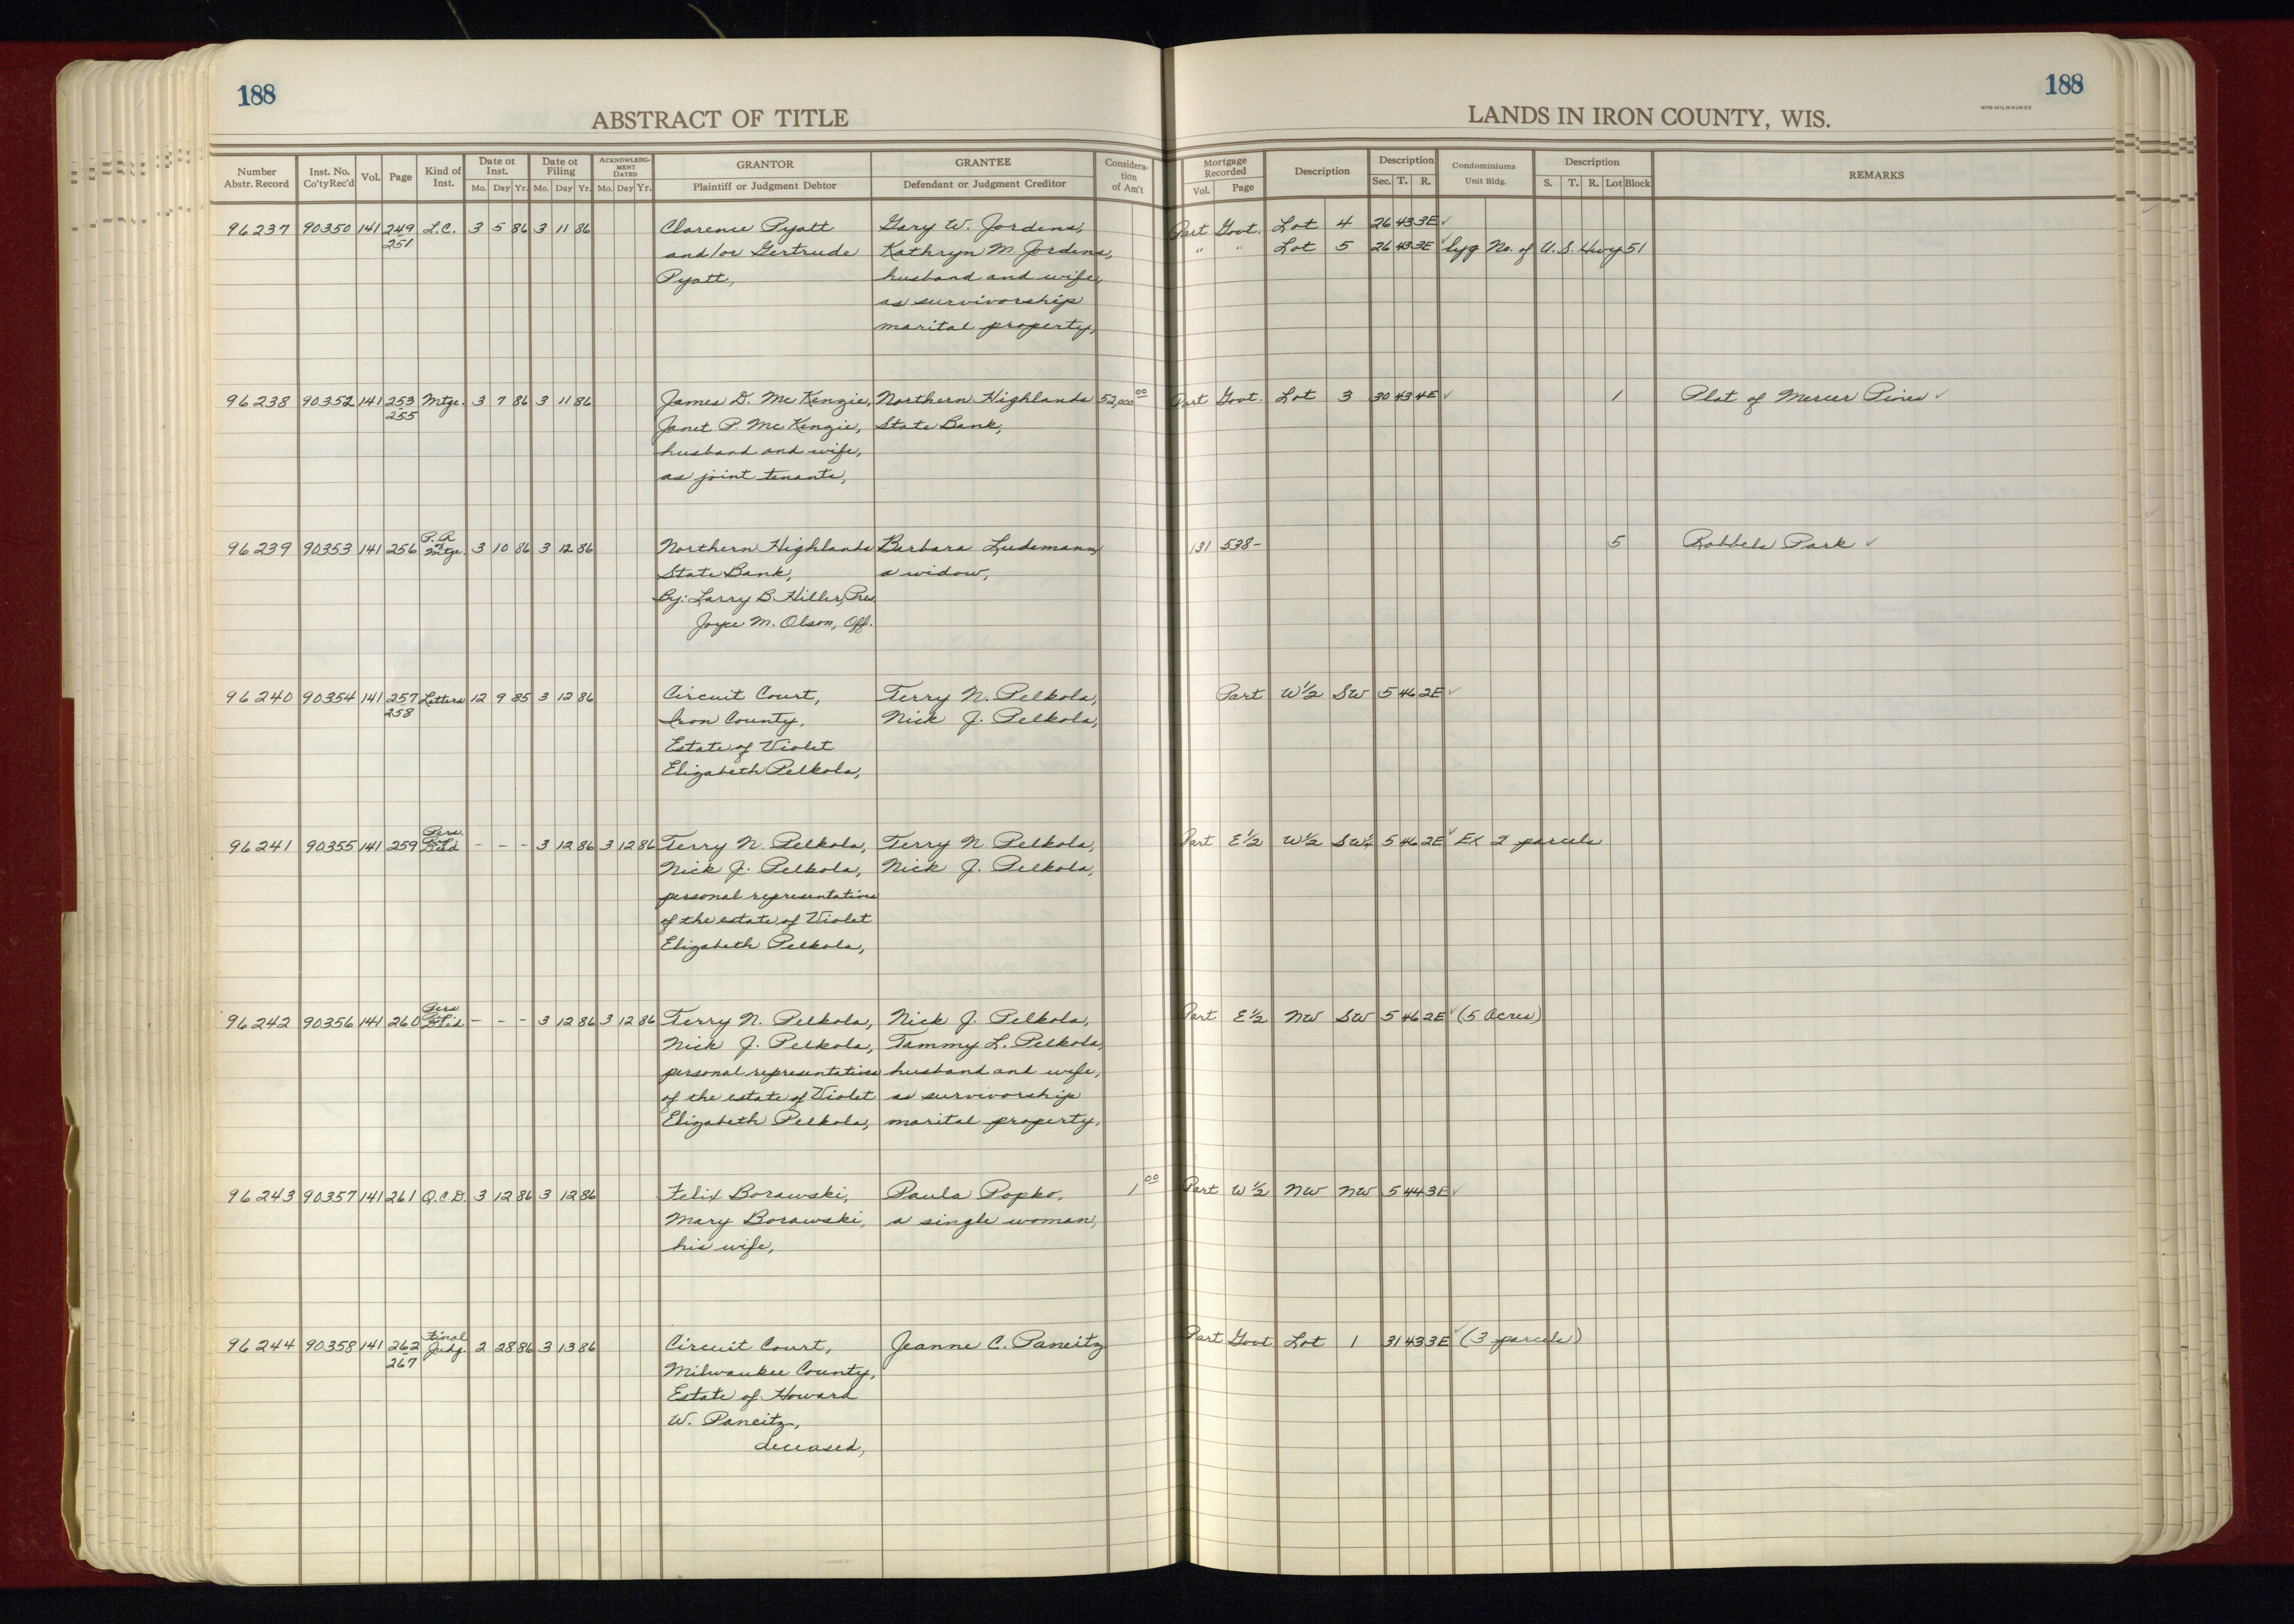 188
188
ABSTRACT OF TITLE
LANDS IN IRON COUNTY, WIS.
WPB-MILWAUKEE
Number Abstr. Record | Inst. No. Co'ty Rec'd | Vol. | Page | Kind of Inst. | Date of Inst. Mo. Day Yr. | Date of Filing Mo. Day Yr. | ACKNOWLEDGMENT DATED Mo. Day Yr. | GRANTOR Plaintiff or Judgment Debtor | GRANTEE Defendant or Judgment Creditor | Consideration of Am't | Mortgage Recorded Vol. Page | Description | Description Sec. T. R. | Condominiums Unit Bldg. | Description S. T. R. Lot Block | REMARKS
96237 90350 141 249 L.C. 3 5 86 3 11 86 Clarence Pyatt Gary W. Jordens, Part Govt. Lot 4 26 43 3E ✓
251 and/or Gertrude Kathryn M. Jordens, " " Lot 5 26 43 3E ✓ lyg No. of U.S. Hwy 51
Pyatt, husband and wife,
as survivorship
marital property,
96238 90352 141 253 Mtge. 3 7 86 3 11 86 James D. McKenzie, Northern Highlands 52,000 00 Part Govt. Lot 3 30 43 4E ✓ 1 Plat of Mercer Pines ✓
255 Janet P. McKenzie, State Bank,
husband and wife,
as joint tenants,
96239 90353 141 256 P.R. of Mtge. 3 10 86 3 12 86 Northern Highlands Barbara Ludemann, 131 538- 5 Robbels Park ✓
State Bank, a widow,
By: Larry B. Hiller, Pres.
Joyce M. Olson, Off.
96240 90354 141 257 Letters 12 9 85 3 12 86 Circuit Court, Terry N. Pelkola, Part W½ SW 5 46 2E ✓
258 Iron County, Nick J. Pelkola,
Estate of Violet
Elizabeth Pelkola,
96241 90355 141 259 Pers. Rep. Deed - - - 3 12 86 3 12 86 Terry N. Pelkola, Terry N. Pelkola, Part E½ W½ SW¼ 5 46 2E ✓ EX 2 parcels
Nick J. Pelkola, Nick J. Pelkola,
personal representatives
of the estate of Violet
Elizabeth Pelkola,
96242 90356 141 260 Pers. Rep. Deed - - - 3 12 86 3 12 86 Terry N. Pelkola, Nick J. Pelkola, Part E½ NW SW 5 46 2E ✓ (5 Acres)
Nick J. Pelkola, Tammy L. Pelkola,
personal representatives husband and wife,
of the estate of Violet as survivorship
Elizabeth Pelkola, marital property.
96243 90357 141 261 Q.C.D. 3 12 86 3 12 86 Felix Borawski, Paula Popko, 1 00 Part W½ NW NW 5 44 3E ✓
Mary Borawski, a single woman,
his wife,
96244 90358 141 262 Final Judg. 2 28 86 3 13 86 Circuit Court, Jeanne C. Paneitz Part Govt Lot 1 31 43 3E ✓ (3 parcels)
267 Milwaukee County,
Estate of Howard
W. Paneitz,
deceased,